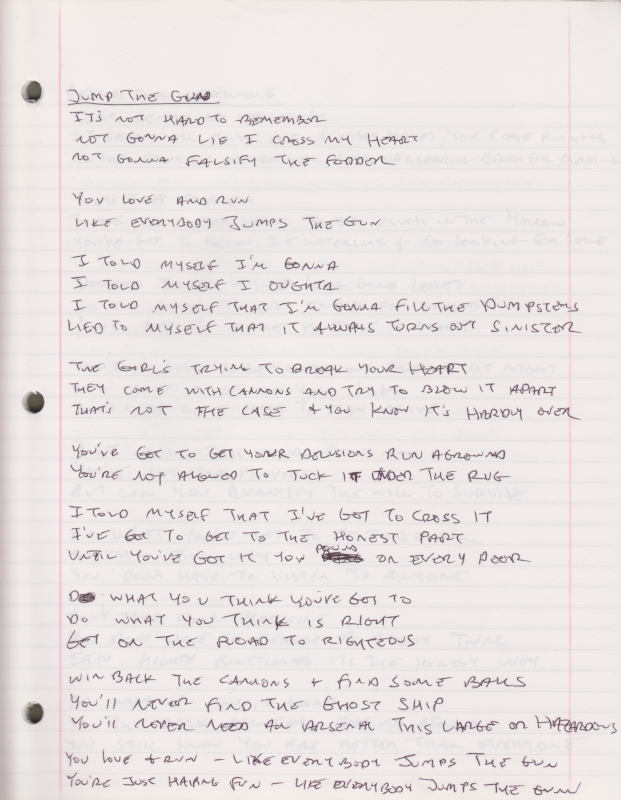 JUMP THE GUN
IT'S NOT HARD TO REMEMBER
NOT GONNA LIE I CROSS MY HEART
NOT GONNA FALSIFY THE FODDER
YOU LOVE AND RUN
LIKE EVERYBODY JUMPS THE GUN
I TOLD MYSELF I'M GONNA
I TOLD MYSELF I OUGHTA
I TOLD MYSELF THAT I'M GONNA FILL THE DUMPSTERS
LIED TO MYSELF THAT IT ALWAYS TURNS OUT SINISTER
THE GIRL'S TRYING TO BREAK YOUR HEART
THEY COME WITH CANNONS AND TRY TO BLOW IT APART
THAT'S NOT THE CASE + YOU KNOW IT'S HARDLY OVER
YOU'VE GOT TO GET YOUR DELUSIONS RUN AGROUND
YOU'RE NOT ALLOWED TO TUCK IT UNDER THE RUG
I TOLD MYSELF THAT I'VE GOT TO CROSS IT
I'VE GOT TO GET TO THE HONEST PART
UNTIL YOU'VE GOT IT YOU POUND ON EVERY DOOR
DO WHAT YOU THINK YOU'VE GOT TO
DO WHAT YOU THINK IS RIGHT
GET ON THE ROAD TO RIGHTEOUS
WIN BACK THE CANNONS + FIND SOME BALLS
YOU'LL NEVER FIND THE GHOST SHIP
YOU'LL NEVER NEED AN ARSENAL THIS LARGE OR HAZARDOUS
YOU LOVE + RUN - LIKE EVERYBODY JUMPS THE GUN
YOU'RE JUST HAVING FUN - LIKE EVERYBODY JUMPS THE GUN